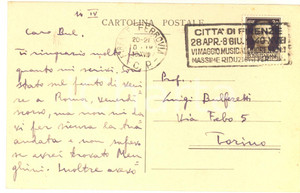 10 IV
CARTOLINA POSTALE
Caro Bul.
Ti ringrazio molto
quanto mi scrivi. Sono
stato sul punto di veni-
re a Roma, venerdì
nosso, ma non mi da
vi per sicura la tua
andata e non sape-
vo se avrei trovato Men
ghini. Inoltre avevo
CITTÀ DI FIRENZE
28 APR.-8 GIU. 1940
VI MAGGIO MUSIC.
MASSIME RIDUZIONI
Prof.
Luigi Bulferetti
Via Febo 5
Torino